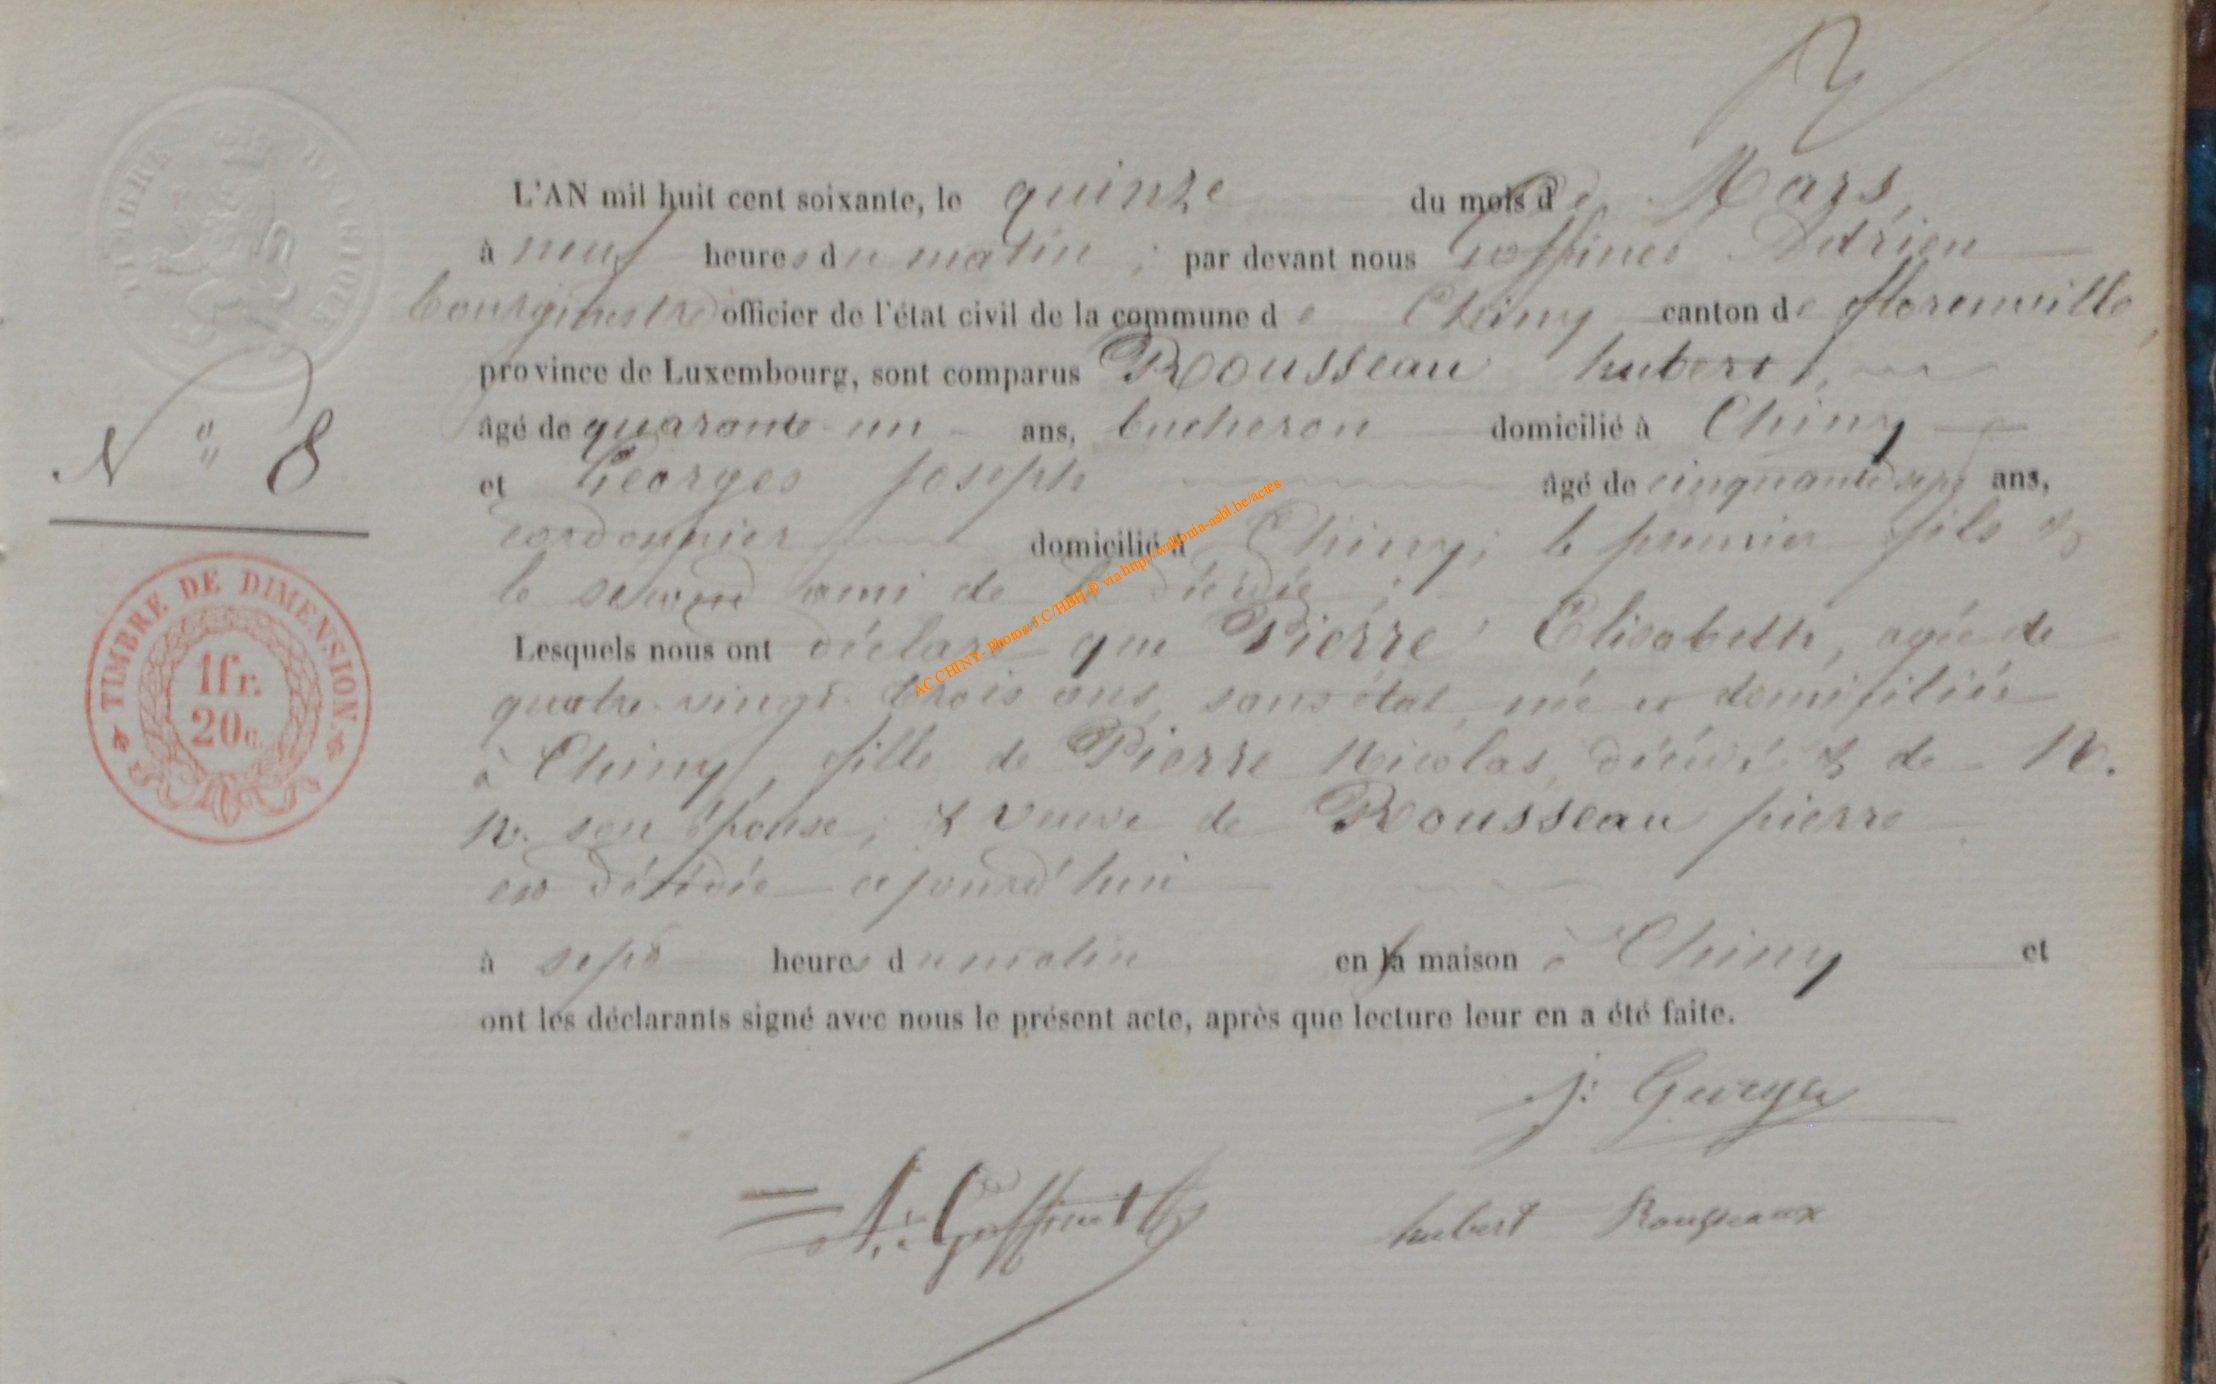 TIMBRE BELGIQUE
L'AN mil huit cent soixante, le quinze du mois de Mars,
à neuf heures du matin ; par devant nous Goffinet Adrien
bourgmestre officier de l'état civil de la commune de Chiny canton de florenville,
province de Luxembourg, sont comparus Rousseau hubert,
N° 8
âgé de quarante-un ans, bucheron domicilié à Chiny
et Georges joseph âgé de cinquante sept ans,
cordonnier domicilié à Chiny; le premier fils &
le second ami de la décédée ;
Lesquels nous ont déclaré que Pierre Elisabeth, agée de
quatre-vingt-trois ans, sans état, née et domiciliée
à Chiny, fille de Pierre Nicolas, décédé & de N.
N. son épouse ; & veuve de Rousseau pierre
est décédée cejourd'hui
à sept heures du matin en sa maison à Chiny et
ont les déclarants signé avec nous le présent acte, après que lecture leur en a été faite.
TIMBRE DE DIMENSION
1fr.
20c.
AC CHINY- photos J.C/HBH ® via http://wallonia-asbl.be/actes
j: Georges
A. Goffinet
hubert Rousseaux